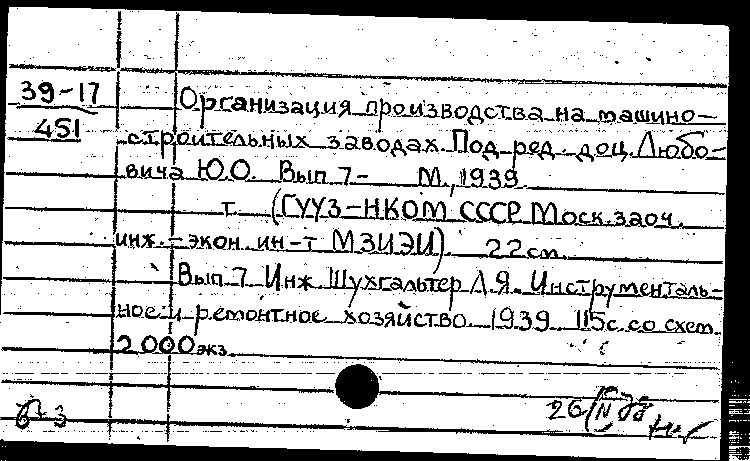 39-17
451
Организация производства на машино-
строительных заводах. Под ред. доц. Любо-
вича Ю.О. Вып 7- М., 1939.
т. (ГУУЗ-НКОМ СССР Моск. заоч.
инж.-экон. ин-т МЗИЭИ). 22 см.
Вып. 7 Инж. Шухгальтер Л.Я. Инструменталь-
ное и ремонтное хозяйство. 1939. 115 с. со схем.
2000 экз.